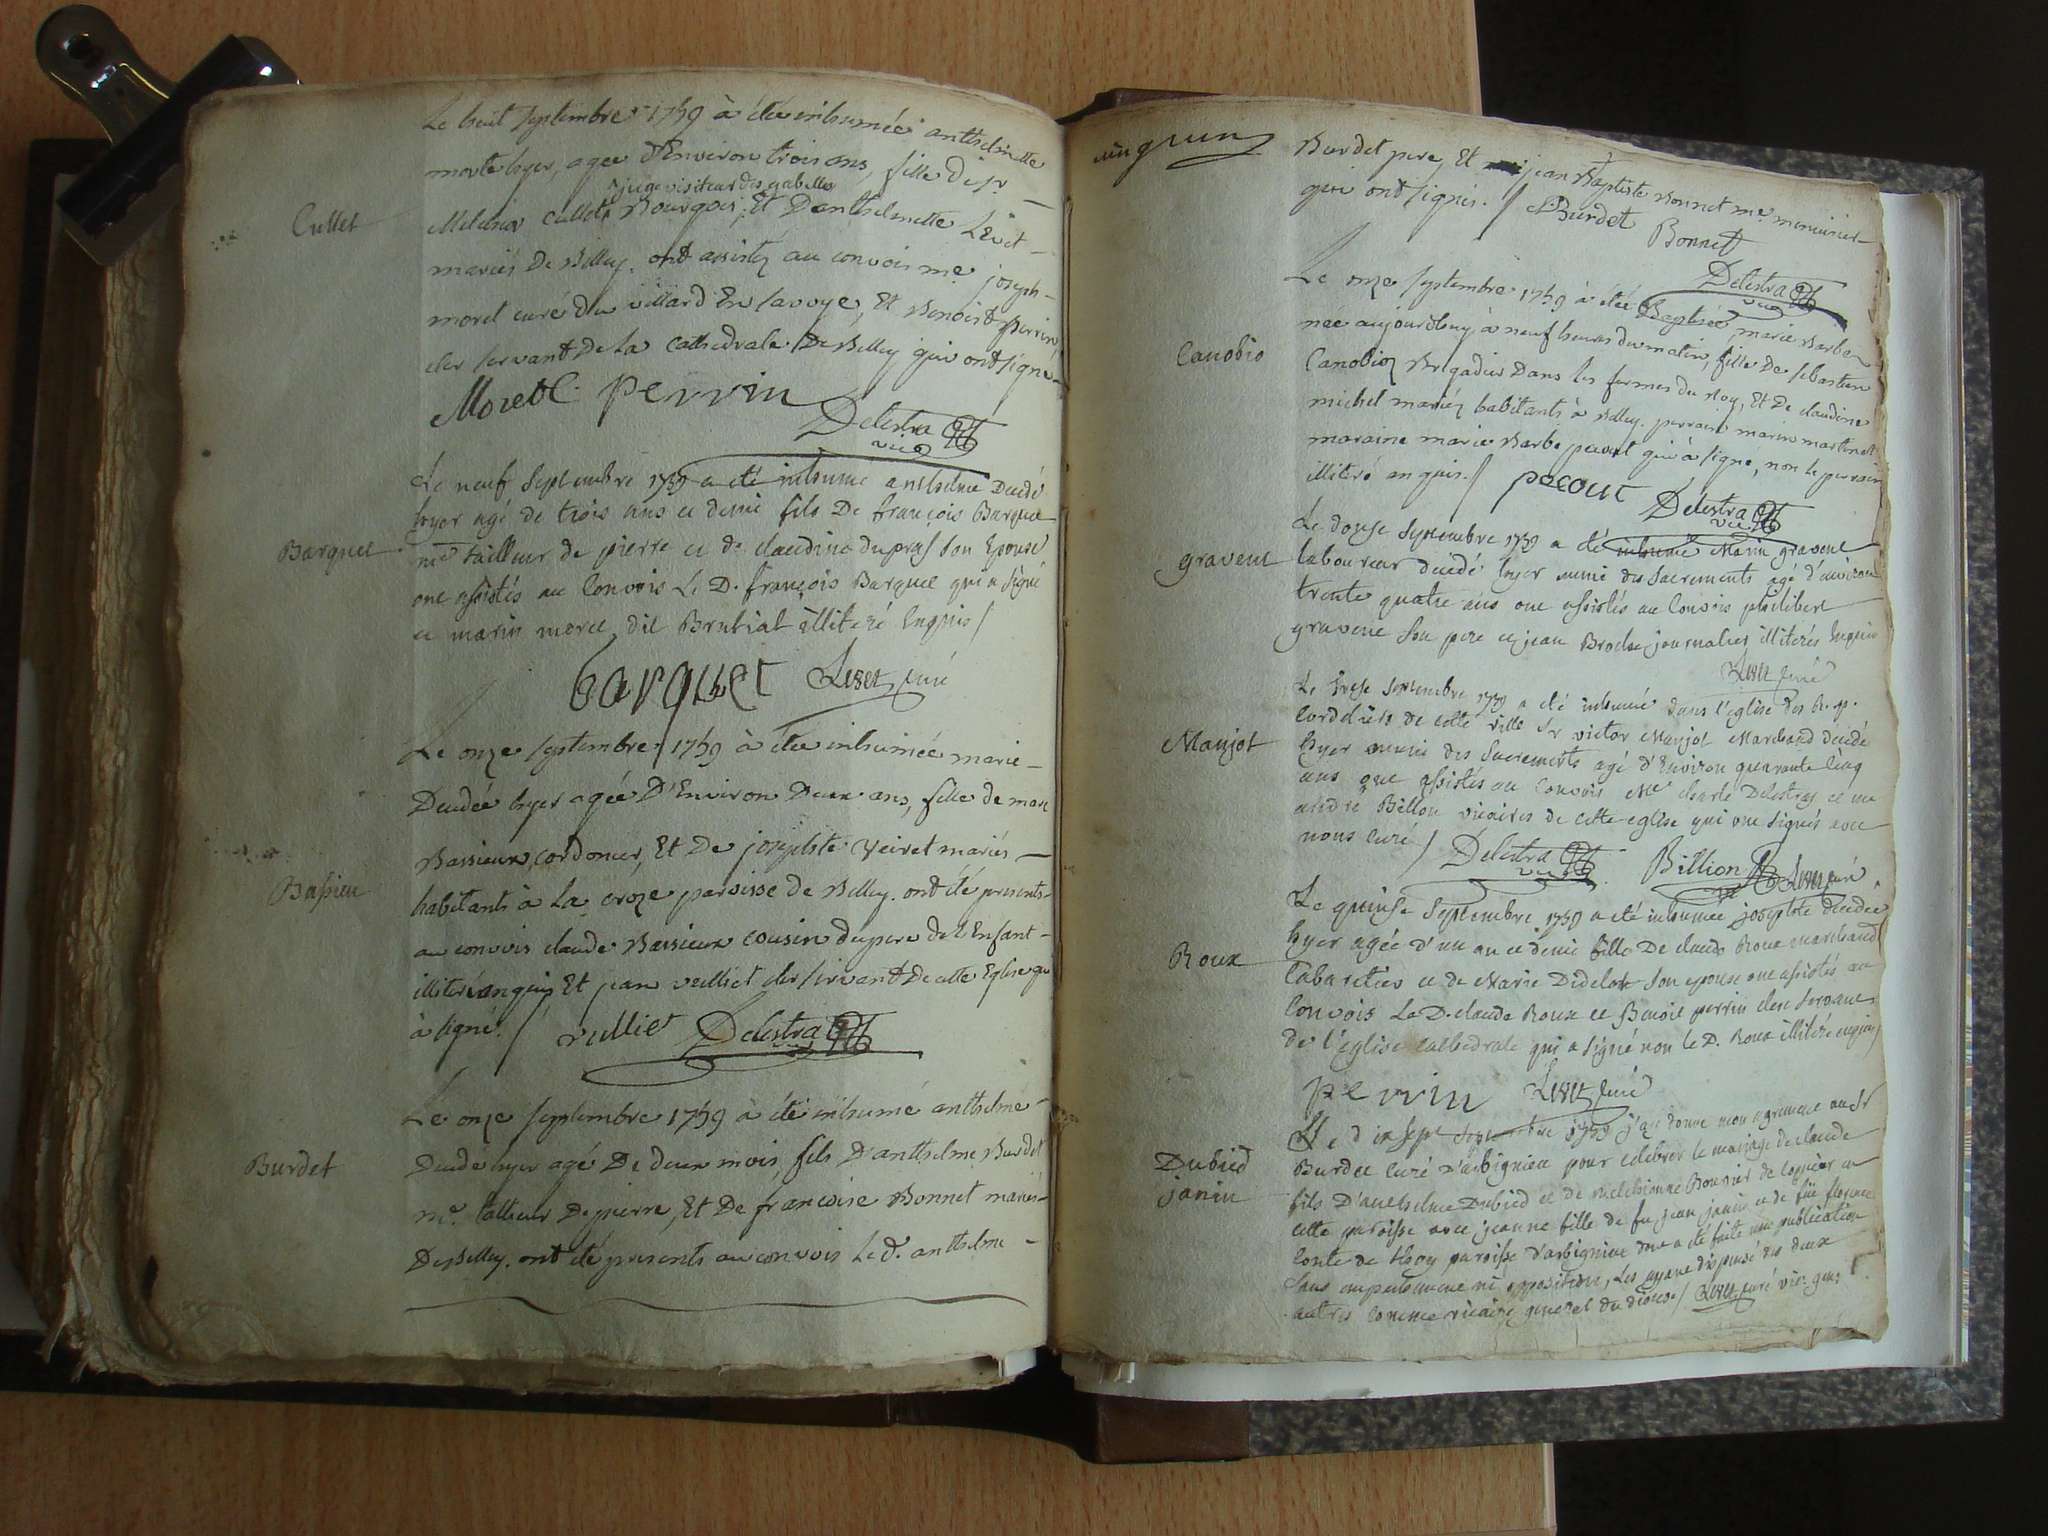 Le huit septembre 1759 à étée inhumée anthelmette
morte hyer, agee d'Environ trois ans, fille de sr
juge visiteur des gabelles
Cullet
Melchior Cullet Bourgois, Et D'anthelmette Levet
mariés De Belley. ont assistez au convois me joseph
morel curé du villard En savoye, Et Benoist perrin
cler servant De La Cathedrale De Belley qui ont signe
Morel C. perrin
Delestra vic
Le neuf Septembre 1759 a eté inhumé anthelme Decedé
hyer agé de trois ans et demi fils De françois Barquet
Barquet
me tailleur de pierre et de claudine dupras son Epouse
ont assistés au Convois Le D. françois Barquet qui a signé
et marin morel dit Brutiat illiteré Enquis /
barquet Levet curé
Le onze septembre 1759 à étée inhumée marie
Decedée hyer agée D'Environ Deux ans, fille de marc
Bassieux, cordonier, Et De josephte Veiret mariés
Bassieu
habitants à La croze paroisse de Belley. ont été presents
au convois claude Bassieux cousin du pere de l'Enfant
illiteré enquis Et jean vulliet cler servant De cette Eglise qui
à signé. / vulliet Delestra vic
Le onze septembre 1759 à été inhumé anthelme
Burdet
Decedé hyer agé De deux mois, fils D'anthelme Burdet
me. tallieur De pierre, Et De francoise Bonnet mariés
De Belley. ont été presents au convois Le d. anthelme
Burdet pere, Et jean Baptiste Bonnet me. menuisier
qui ont signés. / Burdet
Bonnet
Delestra vic
Le onze septembre 1759 à étée Baptisée, marie Barbe
née aujourdhuy à neuf heures du matin, fille De sebastien
Canobio
Canobio Brigadier Dans les fermes du Roy, Et De claudine
michel mariez habitants à Belley. parrain marin martinet
maraine marie Barbe pacout qui à signe, non le parrain
illiteré enquis. / pacout Delestra vic
Le douze Septembre 1759 a eté inhumé Marin gravent
gravent
laboureur décédé hyer muni des Sacrements agé d'environ
trente quatre ans ont assistés au Convois philibert
gravent son pere et jean Broche journalier illiterés Enquis
Levet curé
Le treze Septembre 1759 a eté inhumé dans l'eglise des R. p.
Cordeliers de cette ville Sr victor Manjot Marchand décédé
Manjot
hyer muni des Sacrements agé d'Environ quarante cinq
ans ont assistés au Convois Me charle Delestraz et me
andré Billion vicaires de cette eglise qui ont signés avec
nous curé / Delestra vic Billion Levet curé
Le quinse Septembre 1759 a eté inhumée josephte décédée
hyer agée d'un an et demi fille De claude Roux marchand
Roux
Cabaretier et de Marie Didelot son epouse ont assistés au
Convois Le D. claude Roux et Benoit perrin clerc servant
de l'église cathedrale qui a signé non le D. Roux illiteré enquis /
perrin Levet curé
Le dix sept septembre 1759 j'ay donné mon agrement au Sr
Dubied
janin
Burdet curé d'arbignieu pour celebrer le mariage de claude
fils D'anthelme Dubied et de Melchionne Bouvier de en
cette paroisse avec jeanne fille de fu jean janin et de füe florence
Conte de thoy paroisse d'arbignieu dont a eté faite une publication
sans empechement ni opposition, Les ayant dispensé des deux
autres comme vicaire general du diocese / Levet curé vic. gen.